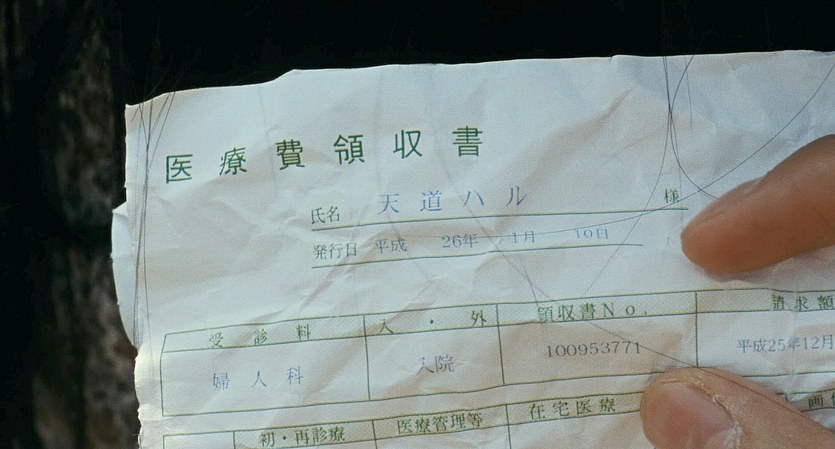 医療費領収書
氏名 天道ハル 様
発行日 平成 26年 1月 10日
受診料 入・外 領収書No. 請求額
婦人科 入院 100953771 平成25年12月
初・再診療 医療管理等 在宅医療 画